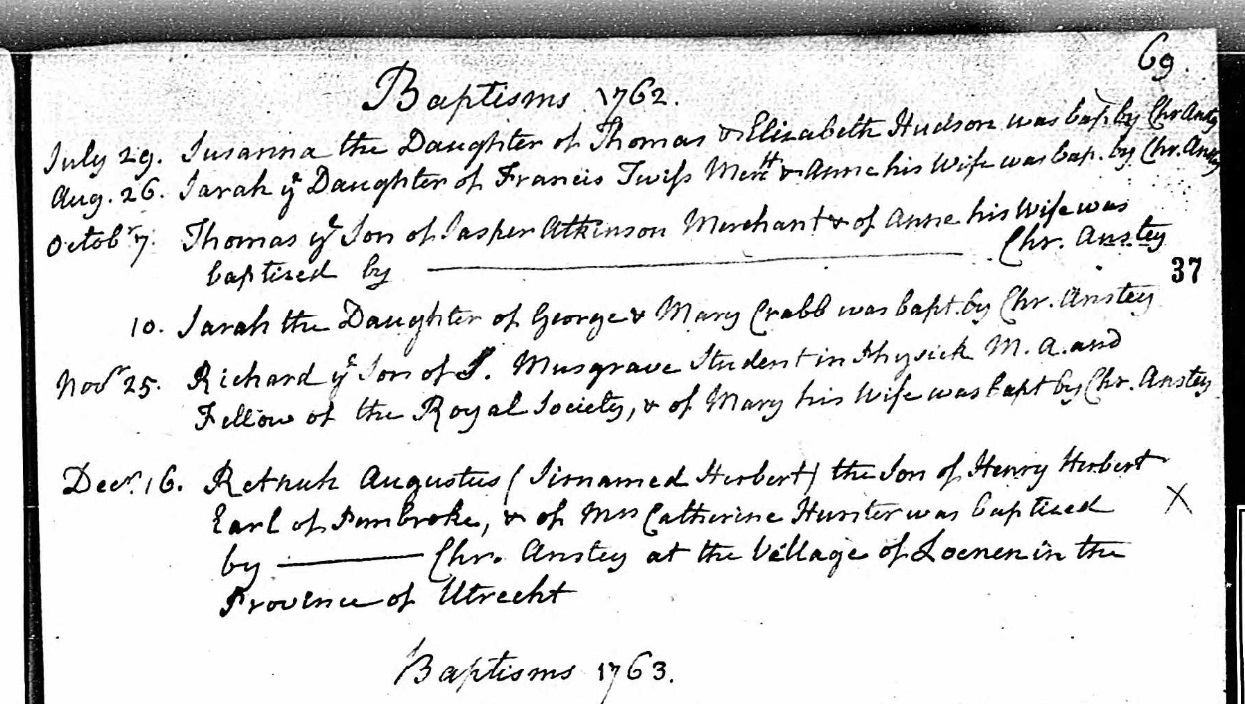 69.
Baptisms 1762.
July 29. Susanna the Daughter of Thomas & Elizabeth Hudson was bap. by Chr Ansty
Aug. 26. Sarah yͤ Daughter of Francis Twiſs Merᵗᵗ & Anne his Wife was bap. by Chr. Anstey
Octobʳ 7. Thomas yͤ Son of Jasper Atkinson Merchant & of Anne his Wife was
baptized by ——— Chr. Anstey
37
10. Sarah the Daughter of George & Mary Crabb was bapt. by Chr. Anstey
Novʳ 25. Richard yͤ Son of S. Musgrave Student in Physick M. A. and
Fellow of the Royal Society, & of Mary his Wife was bapt by Chr. Anstey
Decʳ. 16. Retnuh Augustus (Sirnamed Herbert) the Son of Henry Herbert
Earl of Pembroke, & of Mʳˢ Catherine Hunter was baptized X
by ——— Chr. Anstey at the Village of Loenen in the
Province of Utrecht
Baptisms 1763.